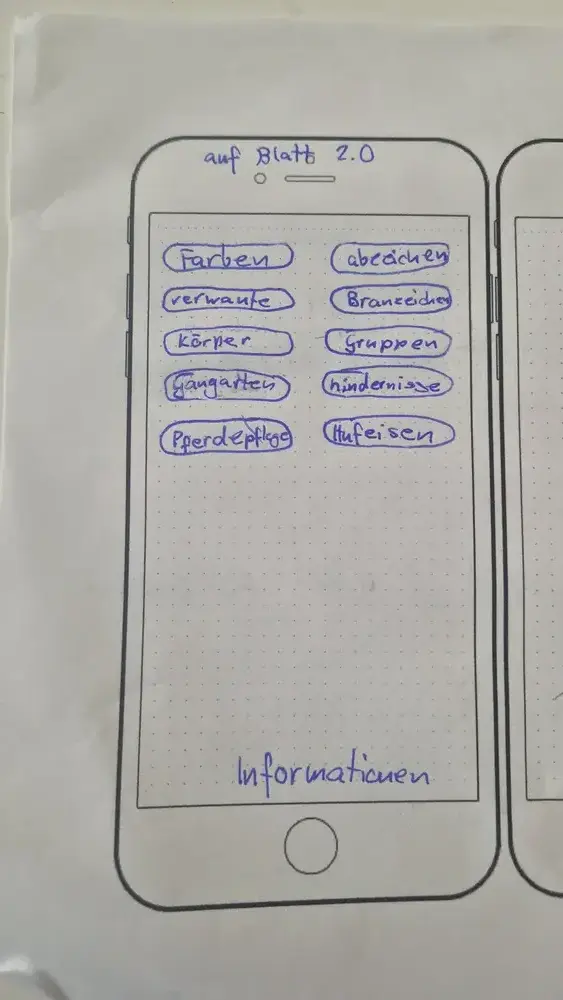 auf Blatt 2.0
Farben abzeichen
verwante Branzeichen
Körper Gruppen
Gangarten hindernisse
Pferdepflege Hufeisen
Informationen